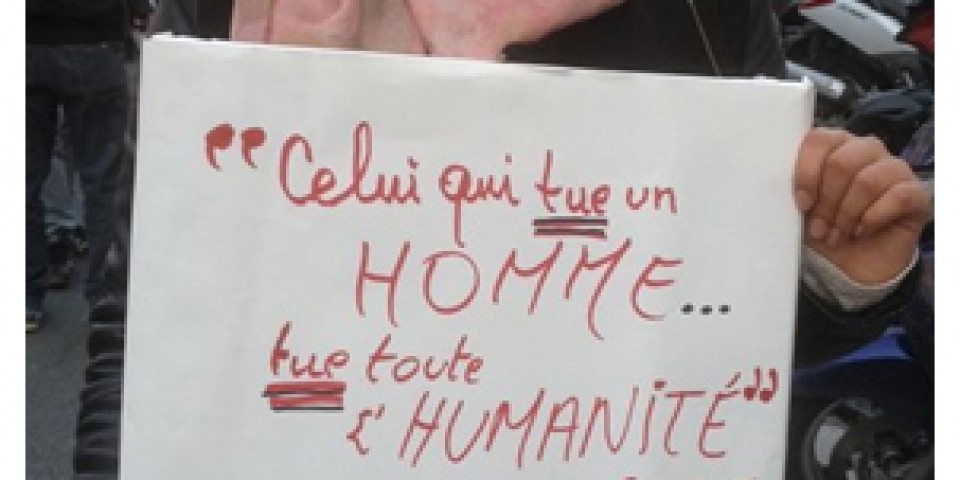 “Celui qui tue un
HOMME...
tue toute
l'HUMANITÉ”